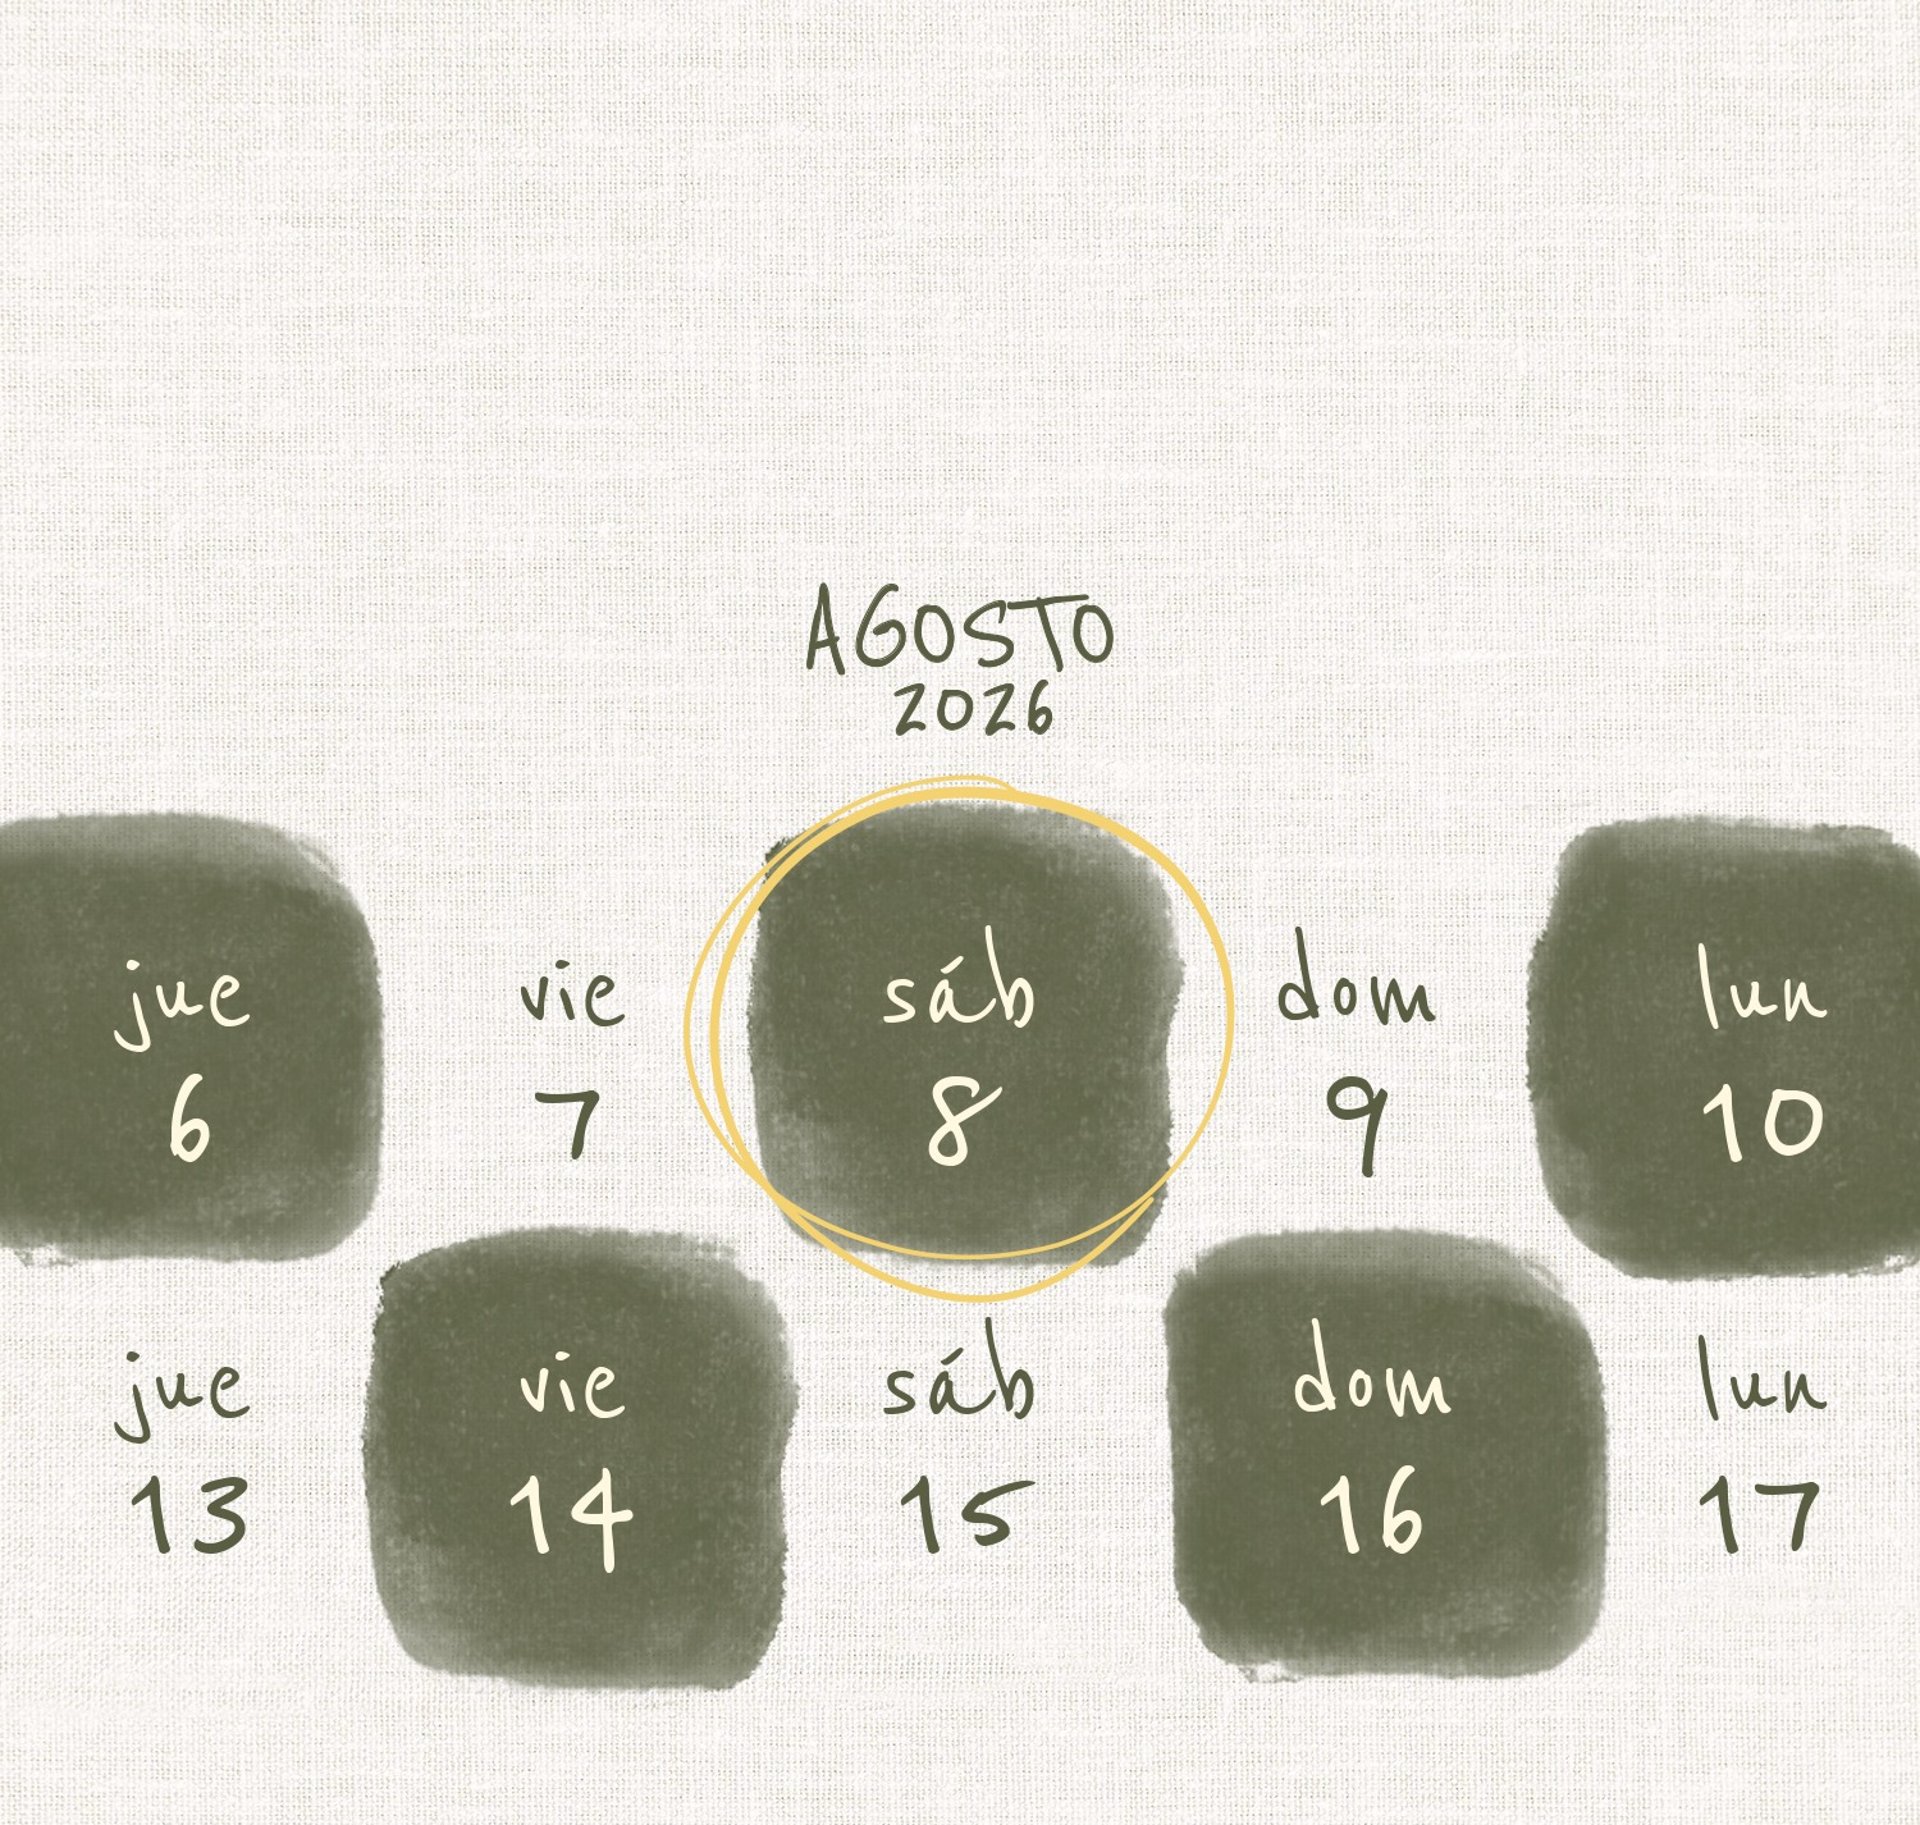 AGOSTO
2026
jue vie sáb dom lun
6 7 8 9 10
jue vie sáb dom lun
13 14 15 16 17